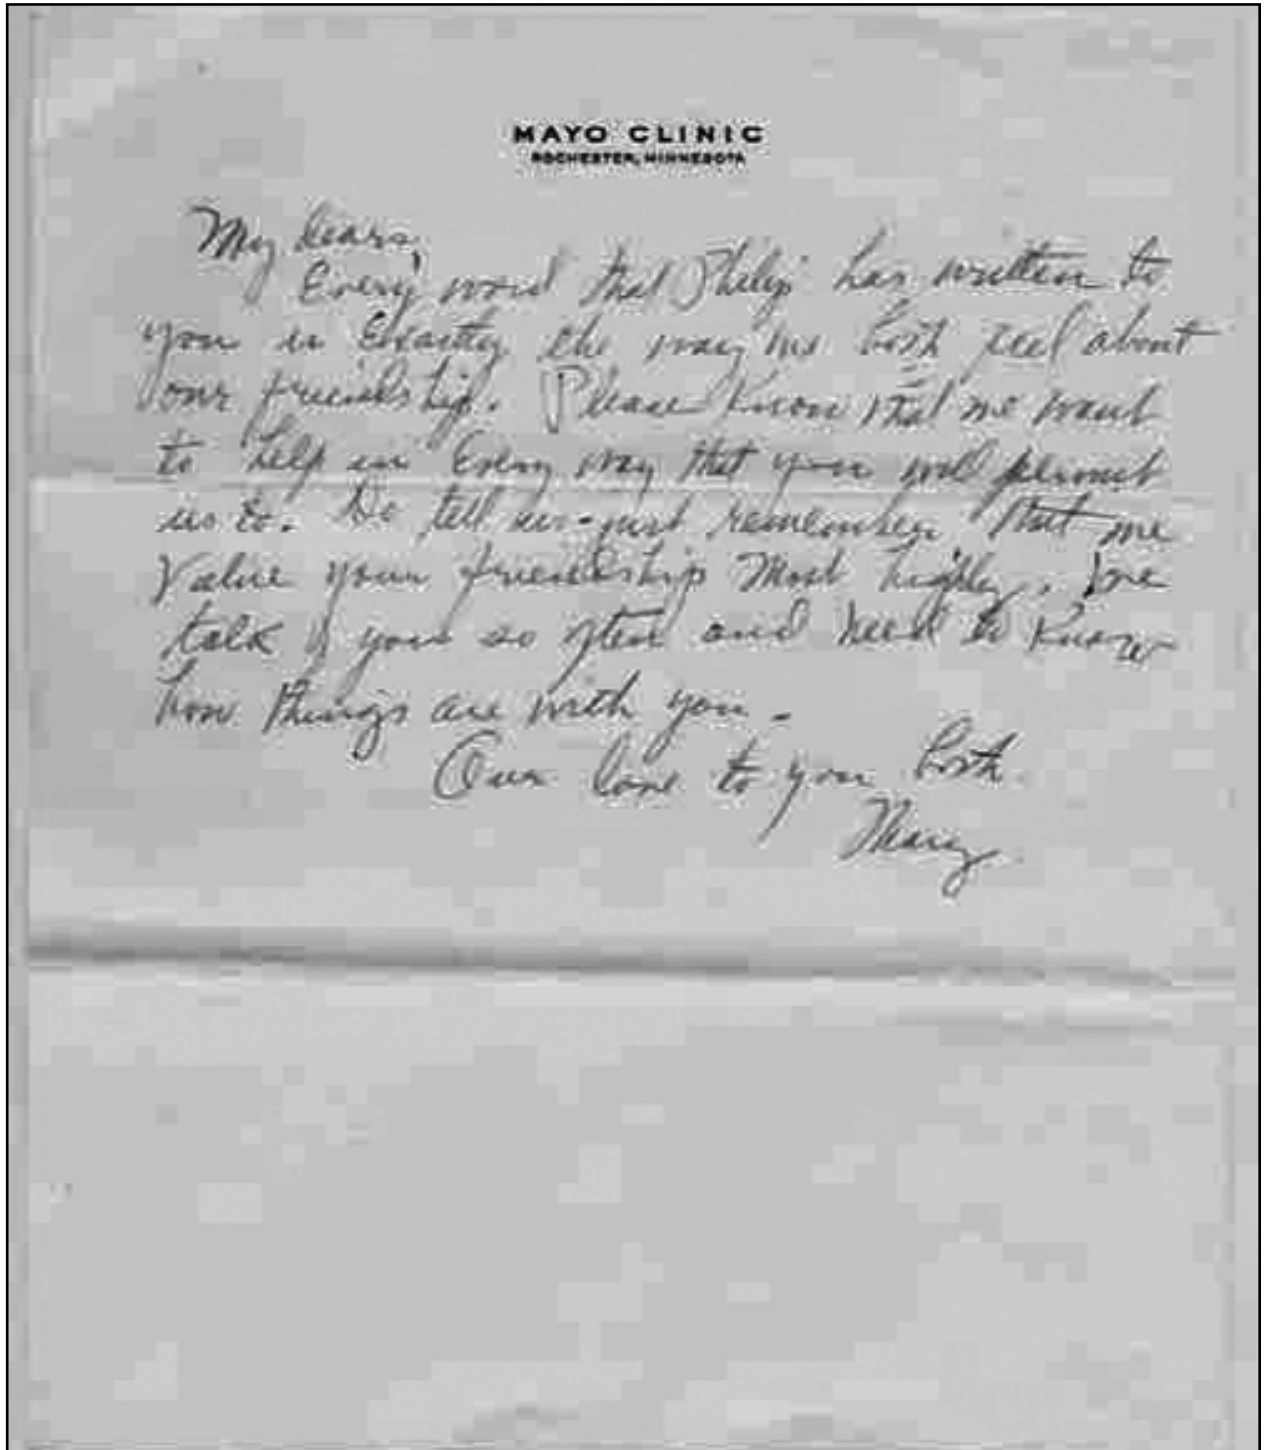 MAYO CLINIC
ROCHESTER, MINNESOTA
My dears,
Every word that Philip has written to
you is exactly the way we both feel about
our friendship. Please know that we want
to help in every way that you will permit
us to. Do tell us - just remember that we
value your friendship most highly. We
talk of you so often and need to know
how things are with you.
Our love to you both
Mary